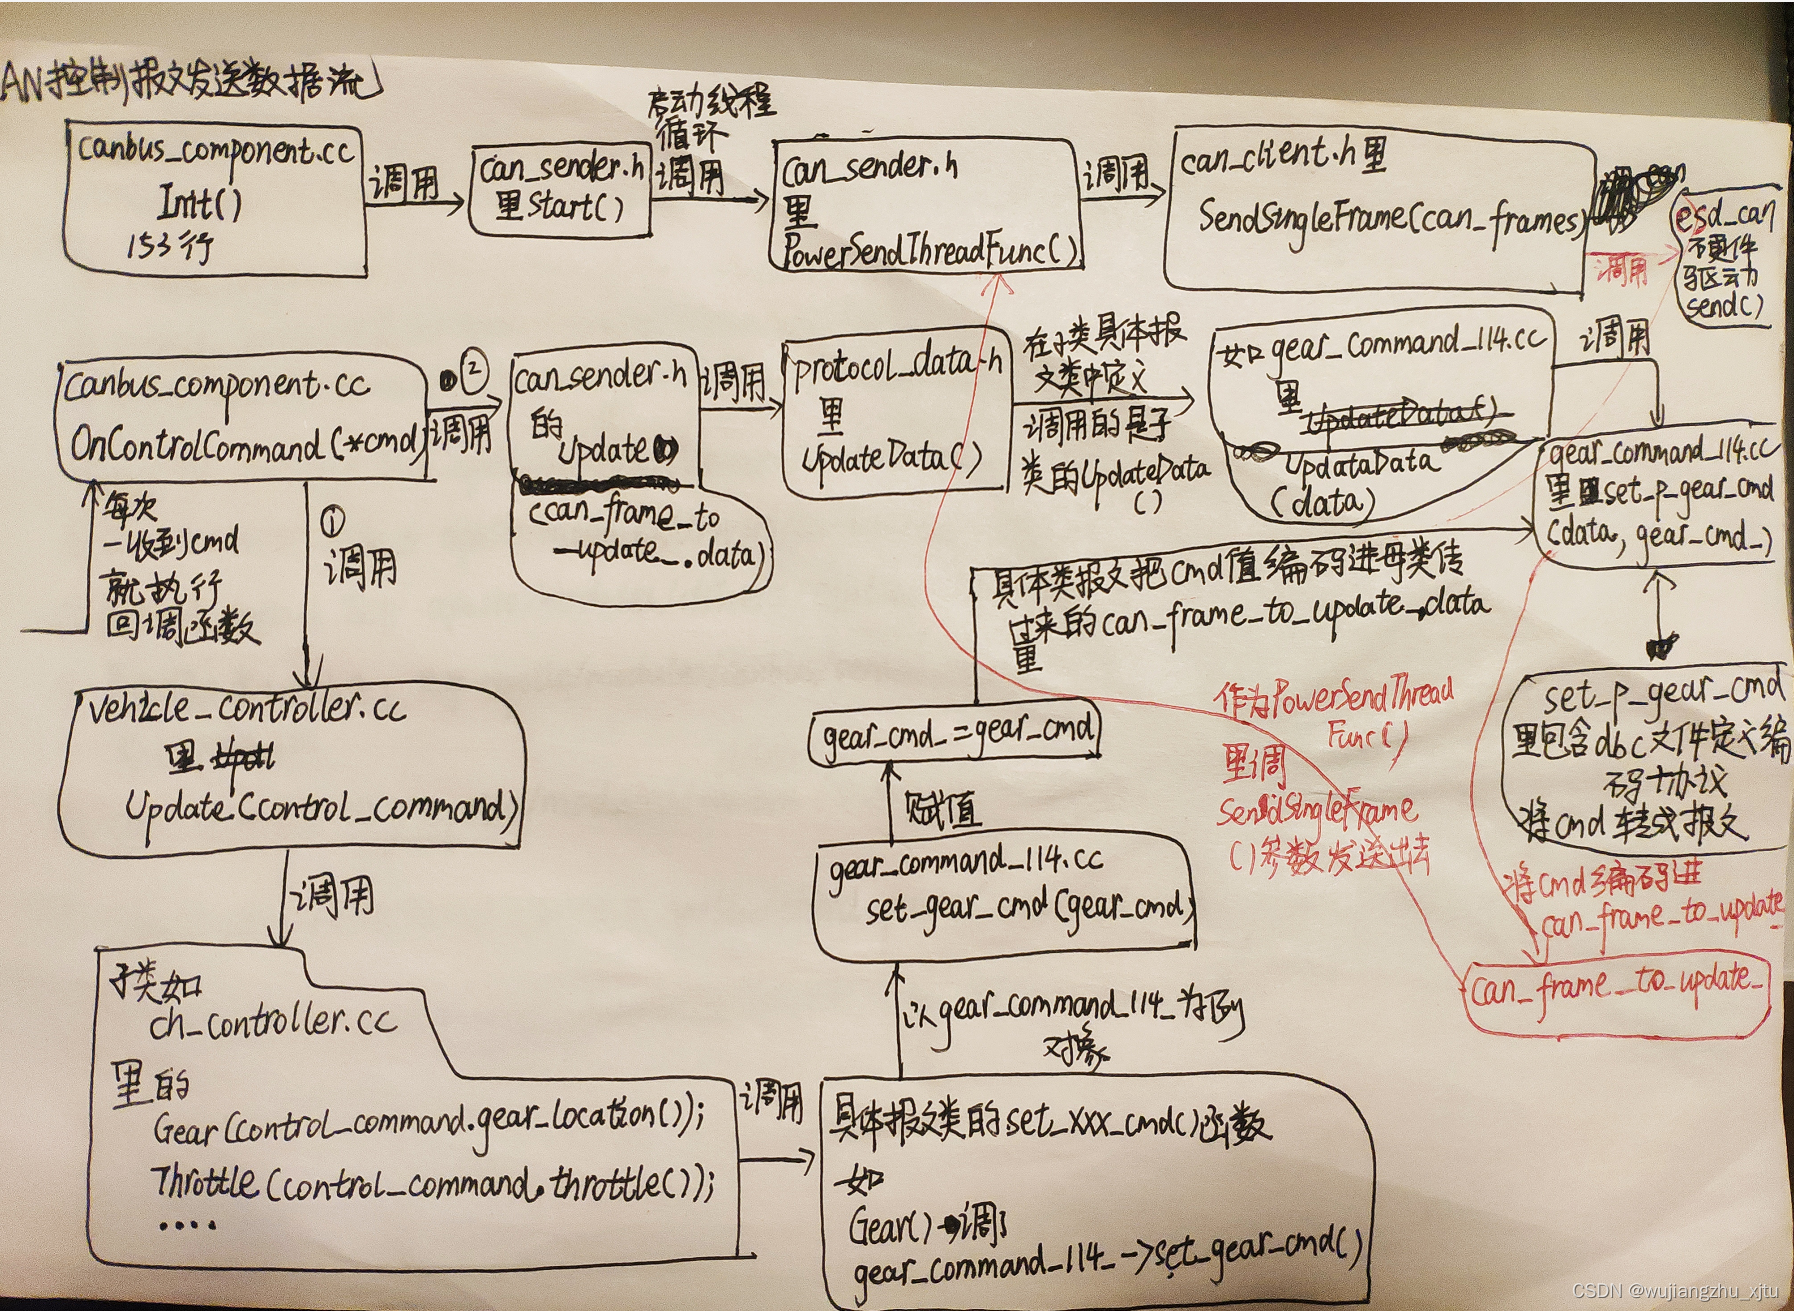 AN控制报文发送数据流
canbus_component.cc
Init()
153行
调用
can_sender.h
里Start()
启动线程
循环
调用
can_sender.h
里
PowerSendThreadFunc()
调用
can_client.h里
SendSingleFrame(can_frames)
can
调用
esd_can
硬件
驱动
send()
canbus_component.cc
OnControlCommand(*cmd)
②
调用
can_sender.h
的
Update
(can_frame_to
_update_.data)
调用
protocol_data.h
里
UpdateData()
在子类具体报
文类中定义
调用的是子
类的UpdateData
()
如gear_Command_114.cc
里UpdateData()
UpdataData
(data)
调用
gear_command_114.cc
里set_p_gear_cmd
(data, gear_cmd_)
每次
一收到cmd
就执行
回调函数
①
调用
具体类报文把cmd值编码进母类传
过来的can_frame_to_update_.data
里
set_p_gear_cmd
里包含dbc文件定义编
码协议
将cmd转成报文
vehicle_controller.cc
里
Update(control_command)
gear_cmd_=gear_cmd
赋值
作为PowerSendThread
Func()
里调
SendSingleFrame
()参数发送出去
gear_command_114.cc
set_gear_cmd(gear_cmd)
将cmd编码进
can_frame_to_update_
can_frame_to_update_
调用
子类如
ch_controller.cc
里的
Gear(control_command.gear_location());
Throttle(control_command.throttle());
····
调用
以gear_command_114_为例
对象
具体报文类的set_xxx_cmd()函数
如
Gear()调了
gear_command_114_->set_gear_cmd()
CSDN @wujiangzhu_xjtu